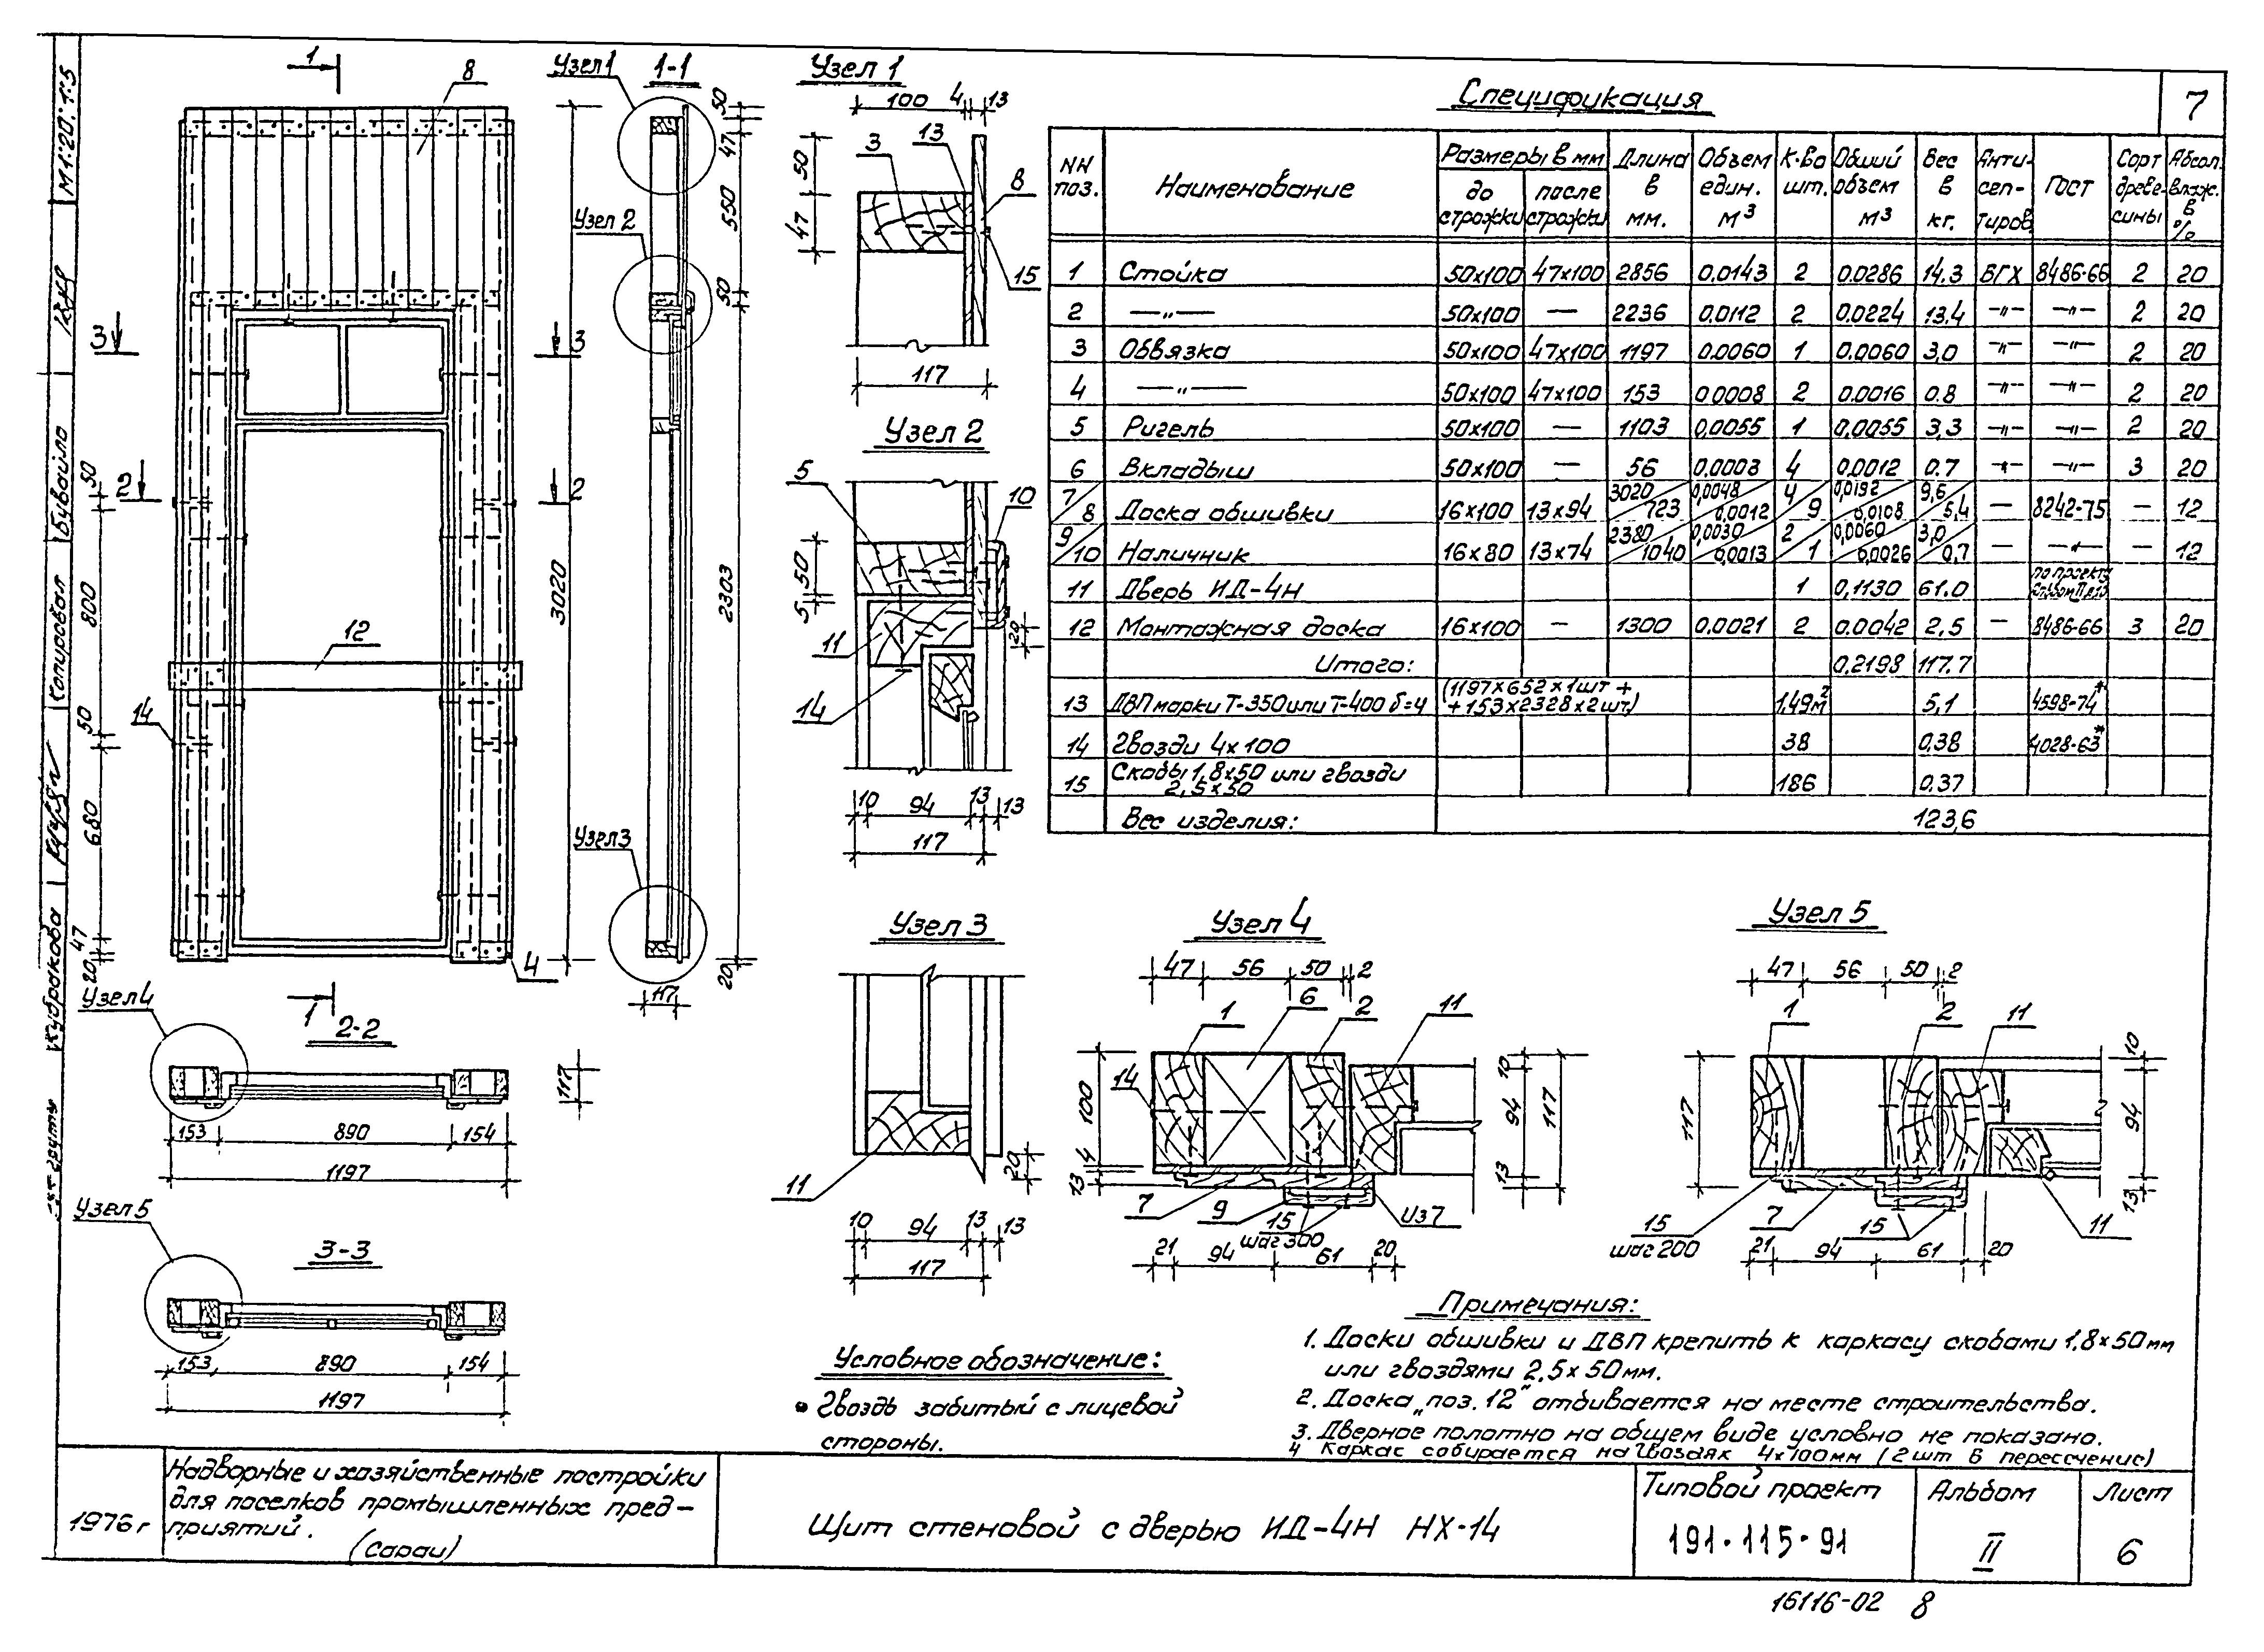 7
Спецификация
NN поз. Наименование Размеры в мм до строжки после строжки Длина в мм. Объем един. м³ К-во шт. Общий объем м³ Вес в кг. Анти-сеп-тиров. ГОСТ Сорт древе-сины Абсол. влаж. в %
1 Стойка 50х100 47х100 2856 0.0143 2 0.0286 14.3 БГХ 8486-66 2 20
2 —„— 50х100 — 2236 0.0112 2 0.0224 13.4 —„— —„— 2 20
3 Обвязка 50х100 47х100 1197 0.0060 1 0.0060 3,0 —„— —„— 2 20
4 —„— 50х100 47х100 153 0.0008 2 0.0016 0.8 —„— —„— 2 20
5 Ригель 50х100 — 1103 0,0055 1 0.0055 3,3 —„— —„— 2 20
6 Вкладыш 50х100 — 56 0.0003 4 0.0012 0.7 —„— —„— 3 20
7/8 Доска обшивки 16х100 13х94 3020/723 0,0048/0,0012 4/9 0,0192/0,0108 9,6/5,4 — 8242-75 — 12
9/10 Наличник 16х80 13х74 2380/1040 0,0030/0,0013 2/1 0,0060/0,0026 3,0/0,7 — —„— — 12
11 Дверь ИД-4Н 1 0,1130 61.0 по проекту
12 Монтажная доска 16х100 — 1300 0,0021 2 0.0042 2,5 — 8486-66 3 20
Итого: 0.2198 117.7
13 ДВП марки Т-350 или Т-400 δ=4 (1197х652х1шт + +153х2328х2шт.) 1,49м² 5,1 4598-74*
14 Гвозди 4х100 38 0,38 4028-63*
15 Скобы 1,8х50 или гвозди 2,5х50 186 0,37
Вес изделия: 123,6
М 1:20; 1:5
Копировал Бувайло
Кубракова
1
8
3 3
2 2
12
14
4
1
50
800
50
680
47
20
3020
Узел 1
1-1
Узел 2
Узел 3
50
47
550
50
2303
20
117
Узел 1
100 4 13
3 13
8
15
50
47
117
Узел 2
5
10
50
5
11
14
20
10 94 13 13
117
Узел 3
11
20
10 94 13 13
117
Узел 4
47 56 50 2
1 6 2 11
14
100
4
13
10
94
13
117
7 9 15 Из 7
шаг 300
21 94 61 20
Узел 5
47 56 50 2
1 2 11
117
10
94
13
15
шаг 200
7 15 11
21 94 61 20
Узел 4
2-2
117
153 890 154
1197
Узел 5
3-3
153 890 154
1197
Условное обозначение:
• Гвоздь забитый с лицевой
стороны.
Примечания:
1. Доски обшивки и ДВП крепить к каркасу скобами 1,8х50мм
или гвоздями 2,5х50мм.
2. Доска „поз. 12" отбивается на месте строительства.
3. Дверное полотно на общем виде условно не показано.
4 Каркас собирается на гвоздях 4х100мм (2шт в пересечение)
1976 г
Надворные и хозяйственные постройки
для поселков промышленных пред-
приятий.
(Сараи)
Щит стеновой с дверью ИД-4Н НХ-14
Типовой проект
191·115·91
Альбом
II
Лист
6
16116-02 8